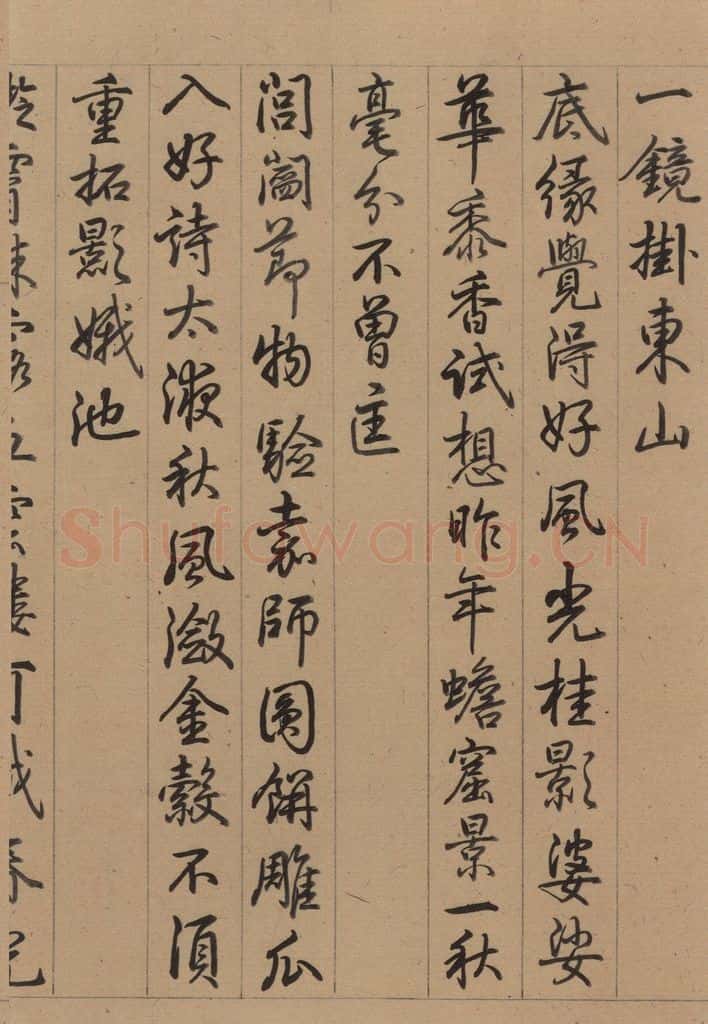 一鏡掛東山
底緣覺得好風光桂影婆娑
華黍香試想昨年蟾窟景一秋
毫分不曾匡
閶闔節物驗嘉師圓餅雕瓜
入好詩太液秋風瀲金縠不須
重拓影娥池
Shufawang.CN